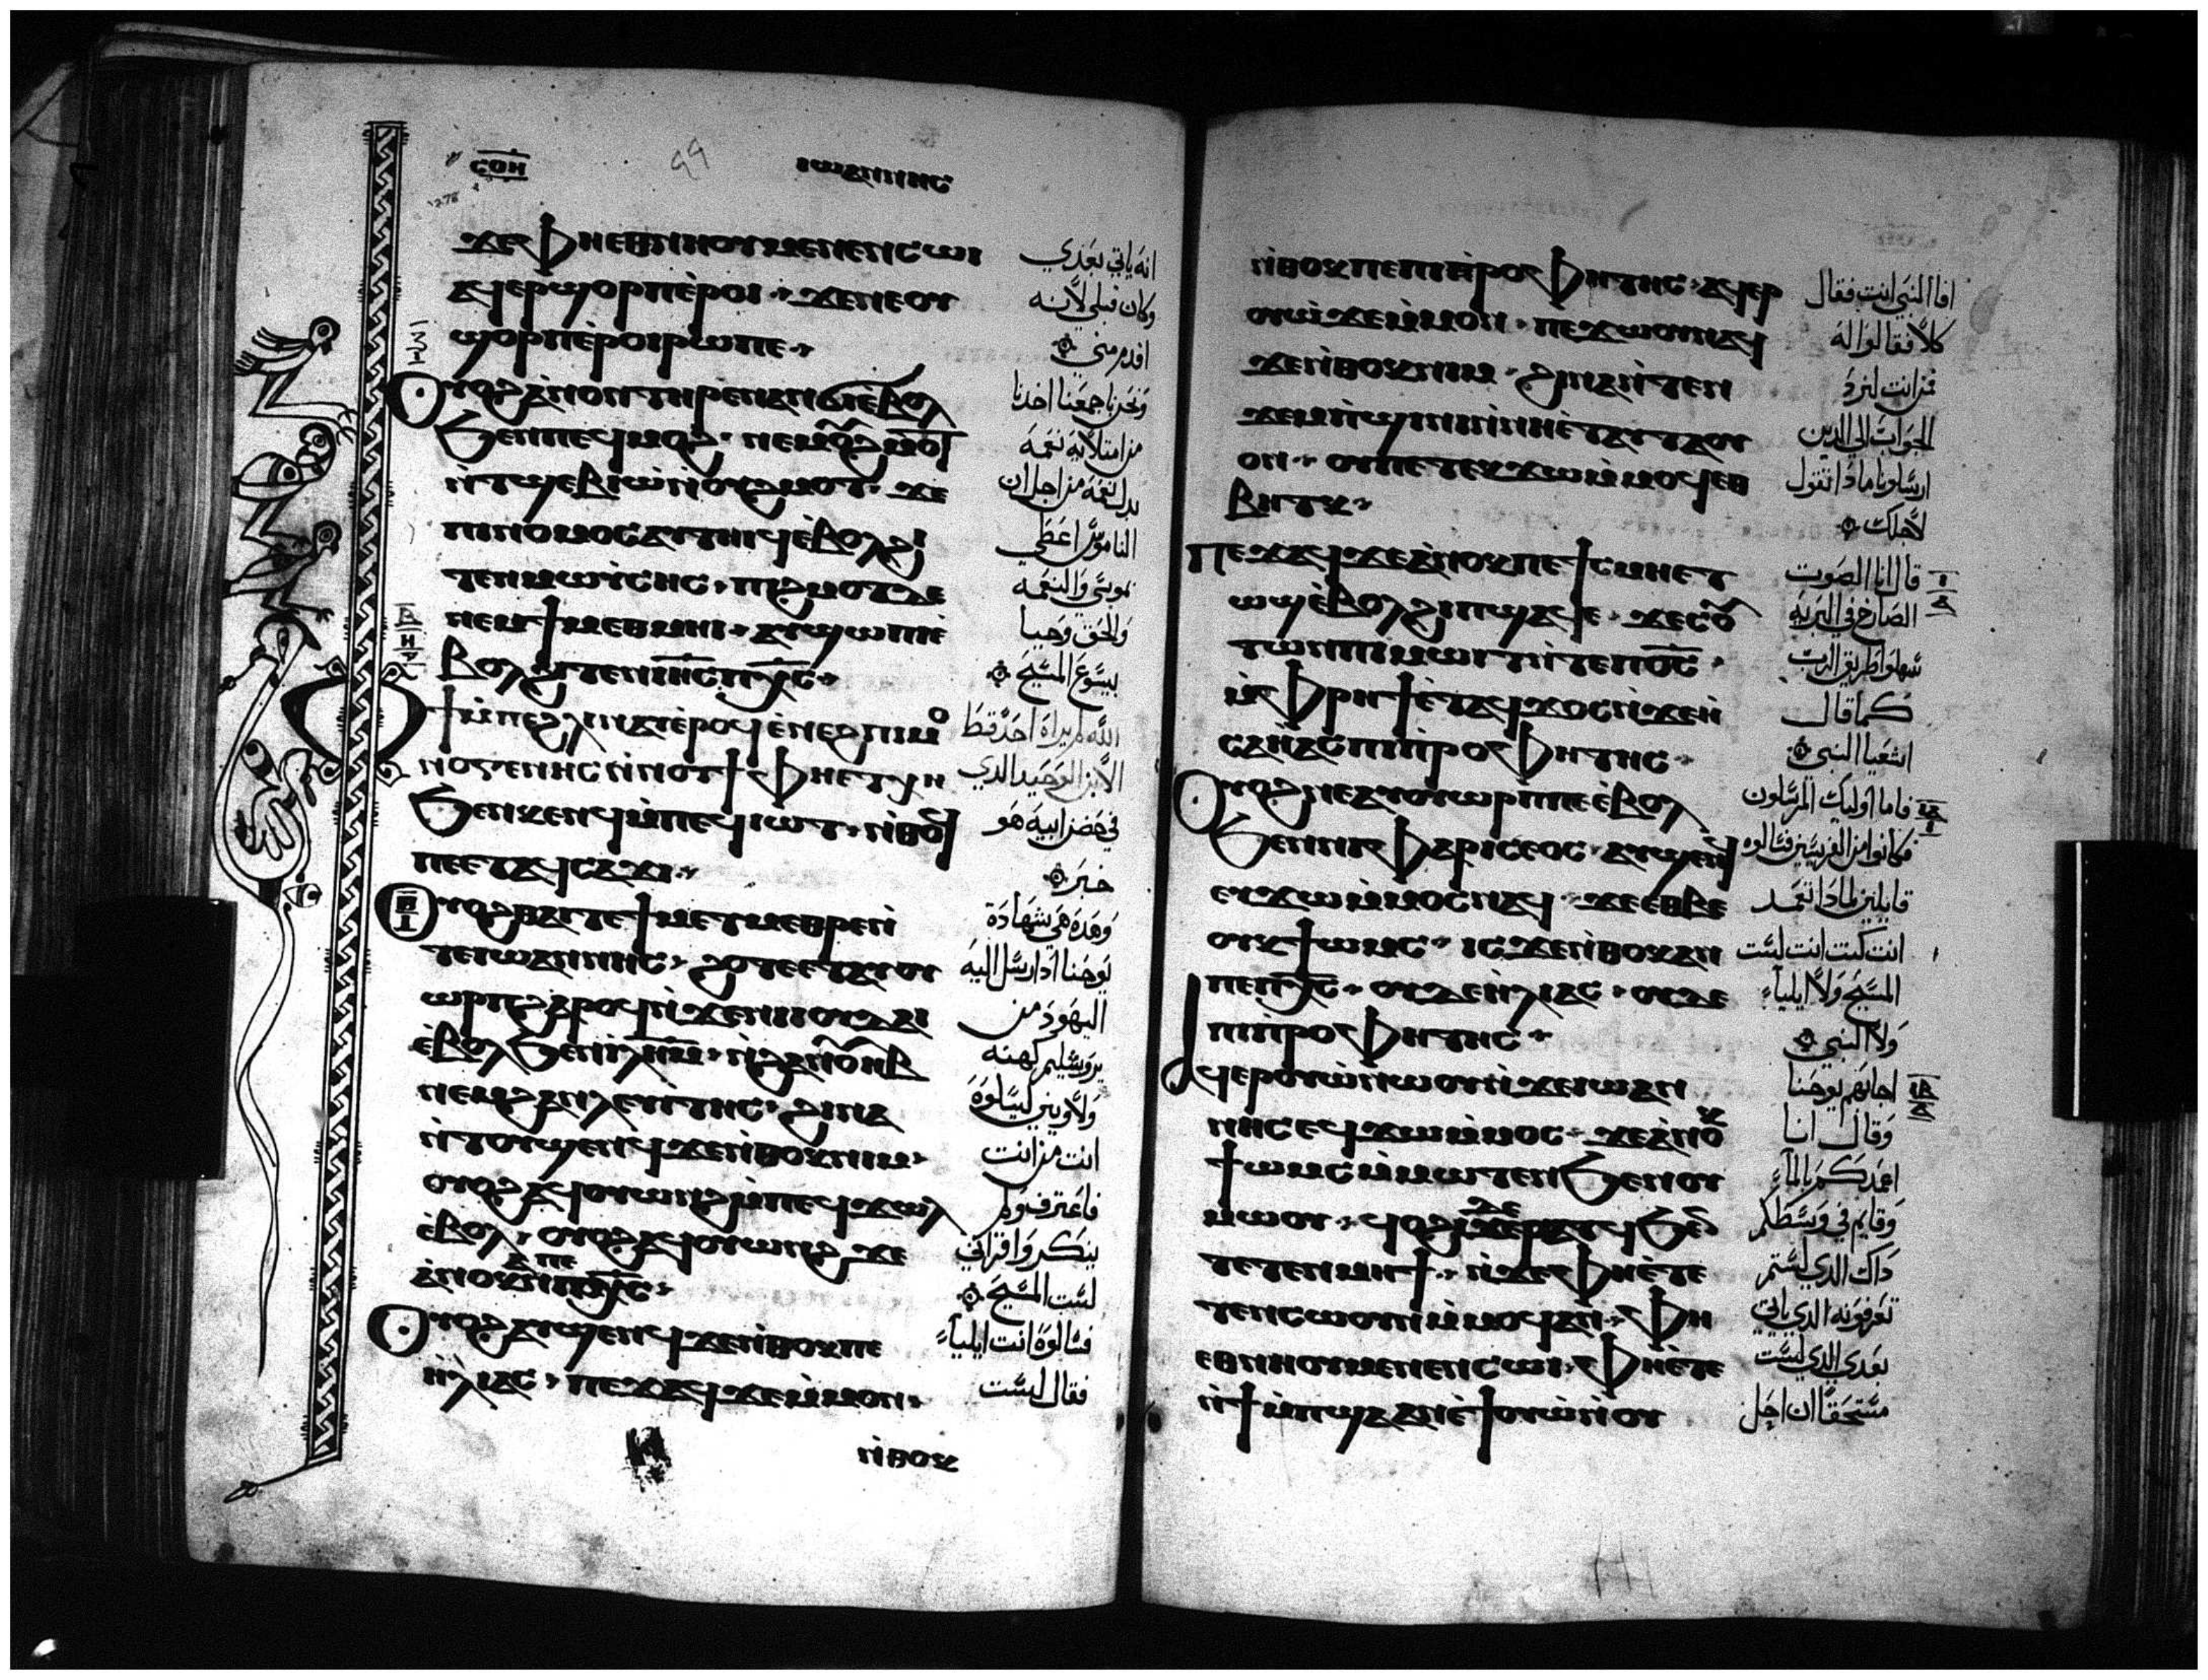 ⲥⲟⲏ 99 ⲓⲱⲁⲛⲛⲏⲥ
278
ϫⲉⲫⲏⲉⲑⲛⲏⲟⲩⲙⲉⲛⲉⲛⲥⲱⲓ
ⲁϥⲉⲣϣⲟⲣⲡⲉ̀ⲣⲟⲓ· ϫⲉⲛⲉⲟⲩ
ϣⲟⲣⲡⲉ̀ⲣⲟⲓⲣⲱⲡⲉ·
ⲟⲩⲟϩⲁ̀ⲛⲟⲛⲧⲏⲣⲉⲛⲁⲛϭⲓⲉ̀ⲃⲟⲗ
ϧⲉⲛⲡⲉϥⲙⲟϩ· ⲛⲉⲙⲟⲩϩⲙⲟⲧ
ⲛ̀ⲧϣⲉⲃⲓⲱ̀ⲛ̀ⲟⲩϩⲙⲟⲧ· ϫⲉ
ⲡⲓⲛⲟⲙⲟⲥⲁⲩⲧⲏⲓϥⲉ̀ⲃⲟⲗϩⲓ
ⲧⲉⲛⲙⲱⲩ̀ⲥⲏⲥ· ⲡⲓϩⲙⲟⲧⲇⲉ
ⲛⲉⲙϯⲙⲉⲑⲙⲏⲓ· ⲁⲩϣⲱⲡⲓⲉ̀
ⲃⲟⲗϩⲓⲧⲉⲛⲓⲏ̅ⲥ̅ⲡⲭ̅ⲥ̅·
ⲫϯⲙ̀ⲡⲉϩⲗⲓⲛⲁⲩⲉ̀ⲣⲟϥⲉ̀ⲛⲉϩⲡⲓⲙⲟ
ⲛⲟⲅⲉⲛⲏⲥⲛ̀ⲛⲟⲩϯ· ⲫⲏⲉⲧⲭⲏ
ϧⲉⲛⲕⲉⲛϥⲙ̀ⲡⲉϥⲓⲱⲧ· ⲛ̀ⲑⲟϥ
ⲡⲉⲉⲧⲁϥⲥⲁϫⲓ·
ⲟⲩⲟϩⲑⲁⲓⲧⲉϯⲙⲉⲧⲙⲉⲑⲣⲉⲛ̀
ⲧⲉⲓⲱⲁⲛⲛⲏⲥ· ϩⲟⲧⲉⲉⲧⲁⲩⲟⲩ
ⲱⲣⲡϩⲁⲣⲟϥⲛ̀ϫⲉⲛⲓⲓⲟⲩⲇⲁⲓ
ⲉ̀ⲃⲟⲗϧⲉⲛⲓ̀ⲗ̅ⲏ̅ⲙ̅· ⲛ̀ϩⲁⲛⲟⲩⲏⲃ
ⲛⲉⲙϩⲁⲛⲗⲉⲩⲓⲧⲏⲥ· ϩⲓⲛⲁ
ⲛ̀ⲧⲟⲩϣⲉⲛϥϫⲉⲛ̀ⲑⲟⲕⲛⲓⲙ·
ⲟⲩⲟϩⲁϥⲟⲩⲱⲛϩⲙ̀ⲡⲉϥϫⲱⲗ
ⲉ̀ⲃⲟⲗ· ⲟⲩⲟϩⲁϥⲟⲩⲱⲛϩ ϫⲉ
ⲁ̀ⲛⲟⲕⲁⲛⲡⲉⲡⲭ̅ⲥ̅·
ⲟⲩⲟϩⲁⲩϣⲉⲛϥϫⲉⲛ̀ⲑⲟⲕⲡⲉ
ⲏ̀ⲗⲓⲁⲥ· ⲡⲉϫⲁϥϫⲉⲙ̀ⲙⲟⲛ·
ⲛ̀ⲑⲟⲕ
انه ياتي بعدي
وكان قبلي لأنه
اقدم مني
ونحن باجمعنا اخدنا
من امتلايه نعمه
بدل نعمه من اجل ان
الناموس اعطي
بموسى والنعمه
والحق وحبا
بيسوع المسيح
الله لم يراه احد قط
الابن الوحيد الدي
في حضن ابيه هو
خبر
وهده هي شهادة
يوحنا اد ارسل اليه
اليهود من
يروشليم كهنه
ولاويين ليسلوه
انت من انت
فاعترف ولم
ينكر واقر اني
لست المسيح
فسالوه انت ايلياء
فقال لست
ⲛ̀ⲑⲟⲕⲡⲉⲡⲓⲡ̀ⲣⲟⲫⲏⲧⲏⲥ· ⲁϥⲉⲣ
ⲟⲩⲱ̀ϫⲉⲙ̀ⲙⲟⲛ· ⲡⲉϫⲱⲟⲩⲛⲁϥ
ϫⲉⲛ̀ⲑⲟⲕⲛⲓⲙ· ϩⲓⲛⲁⲛ̀ⲧⲉⲛ
ϫⲉⲙⲡ̀ϣⲓⲛⲓⲛ̀ⲛⲏⲉ̀ⲧⲁⲩⲧⲁⲟⲩ
ⲟⲛ· ⲟⲩⲡⲉⲧⲉⲕϫⲱⲙ̀ⲙⲟϥⲉⲑ
ⲃⲏⲧⲕ·
ⲡⲉϫⲁϥϫⲉⲁ̀ⲛⲟⲕⲡⲉϯⲥⲙⲏⲉⲧ
ⲱϣⲉ̀ⲃⲟⲗϩⲓⲡϣⲁϥⲉ· ϫⲉⲥⲟⲩ
ⲧⲱⲛⲡⲓⲙⲱⲓⲧⲛ̀ⲧⲉⲡⲟ̅ⲥ̅·
ⲙ̀ⲫⲣⲏϯⲉ̀ⲧⲁϥϫⲟⲥⲛ̀ϫⲉⲏ̀
ⲥⲁⲏ̀ⲁⲥⲡⲓⲡ̀ⲣⲟⲫⲏⲧⲏⲥ·
ⲟⲩⲟϩⲛⲉⲁⲩⲟⲩⲱⲣⲡⲡⲉⲉ̀ⲃⲟⲗ
ϧⲉⲛⲛⲓⲫⲁⲣⲓⲥⲉⲟⲥ· ⲁⲩϣⲉⲛϥ
ⲉⲩϫⲱⲙ̀ⲙⲟⲥⲛⲁϥ· ϫⲉⲉⲑⲃⲉ
ⲟⲩⲕϯⲱⲙⲥ· ⲓⲥϫⲉⲛ̀ⲑⲟⲕⲁⲛ
ⲡⲉⲡⲭ̅ⲥ̅· ⲟⲩⲇⲉⲏ̀ⲗⲓⲁⲥ· ⲟⲩⲇⲉ
ⲡⲓⲡ̀ⲣⲟⲫⲏⲧⲏⲥ·
ⲁϥⲉⲣⲟⲩⲱ̀ⲛⲱⲟⲩⲛ̀ϫⲉⲓⲱⲁⲛ
ⲛⲏⲥⲉϥϫⲱⲙ̀ⲙⲟⲥ· ϫⲉⲁ̀ⲛⲟⲕ
ϯⲱⲙⲥⲙ̀ⲙⲱⲧⲉⲛϧⲉⲛⲟⲩ
ⲙⲱⲟⲩ·
ⲧⲉⲧⲉⲛⲙⲏϯ· ⲛ̀ϫⲉⲫⲏⲉ̀ⲧⲉ
ⲧⲉⲛⲥⲱⲟⲩⲛⲙ̀ⲙⲟϥⲁⲛ· ⲫⲏ
ⲉⲑⲛⲏⲟⲩⲙⲉⲛⲉⲛⲥⲱⲓ· ⲫⲏⲉ̀ⲧⲉ
ⲛ̀ϯⲙ̀ⲡϣⲁⲁⲛⲉ̀ϯⲟⲩⲱ̀ⲛ̀ⲟⲩ
افا النبي انت فقال
كلا فقالوا له
فمن انت لنرد
الجواب الي الدين
ارسلونا ما دا تقول
لاجلك
قال انا الصوت
الصارخ في البريه
سهلوا طريق الرب
كما قال
اشعيا النبي
فاما اوليك المرسلون
فكانوا من الفريسيين فسالوه
قايلين لما دا تعمد
انت كنت انت لست
المسيح ولا ايلياء
ولا النبي
اجابهم يوحنا
وقال انا
اعمدكم بالماء
وقايم في وسطكم
داك الدي لستم
تعرفونه الدي ياتي
بعدي الدي لست
مستحقا ان احل